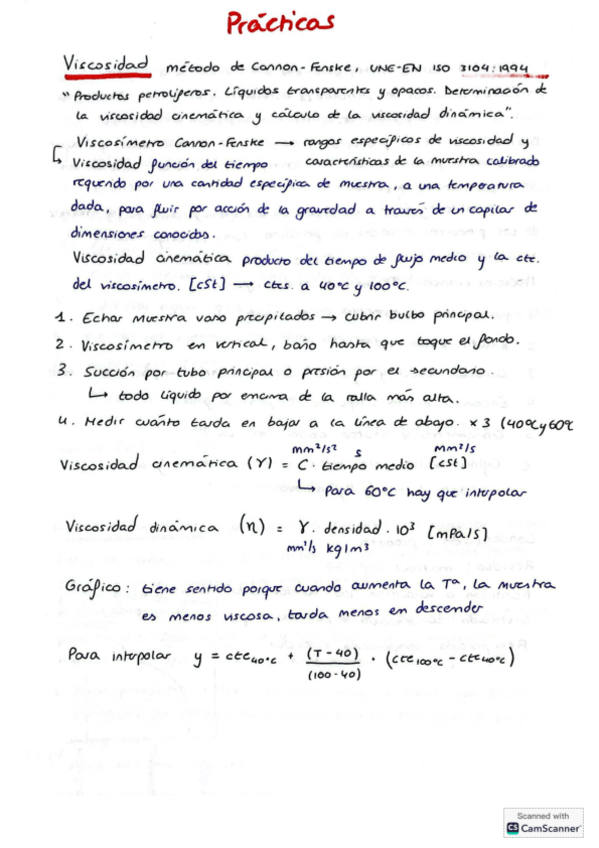 Prácticas
Viscosidad método de Cannon-Fenske, UNE-EN ISO 3104:1994
"Productos petrolíferos. Líquidos transparentes y opacos. Determinación de
la viscosidad cinemática y cálculo de la viscosidad dinámica".
Viscosímetro Cannon-Fenske → rangos específicos de viscosidad y
↳ Viscosidad función del tiempo características de la muestra calibrado
requerido por una cantidad específica de muestra, a una temperatura
dada, para fluir por acción de la gravedad a través de un capilar de
dimensiones conocidas.
Viscosidad cinemática producto del tiempo de flujo medio y la cte.
del viscosímetro. [cSt] → ctes. a 40ºC y 100ºC.
1. Echar muestra vaso precipitados → cubrir bulbo principal.
2. Viscosímetro en vertical, baño hasta que toque el fondo.
3. Succión por tubo principal o presión por el secundario.
↳ todo líquido por encima de la ralla más alta.
4. Medir cuánto tarda en bajar a la línea de abajo. x3 (40ºC y 60ºC
mm²/s² s mm²/s
Viscosidad cinemática (γ) = C · tiempo medio [cSt]
↳ Para 60ºC hay que interpolar
Viscosidad dinámica (η) = γ. densidad. 10³ [mPa/s]
mm²/s kg/m³
Gráfico: tiene sentido porque cuando aumenta la Tª, la muestra
es menos viscosa, tarda menos em descender
Para interpolar y = cte40ºC + (T-40)/(100-40) · (cte100ºC - cte40ºC)
Scanned with
CS CamScanner